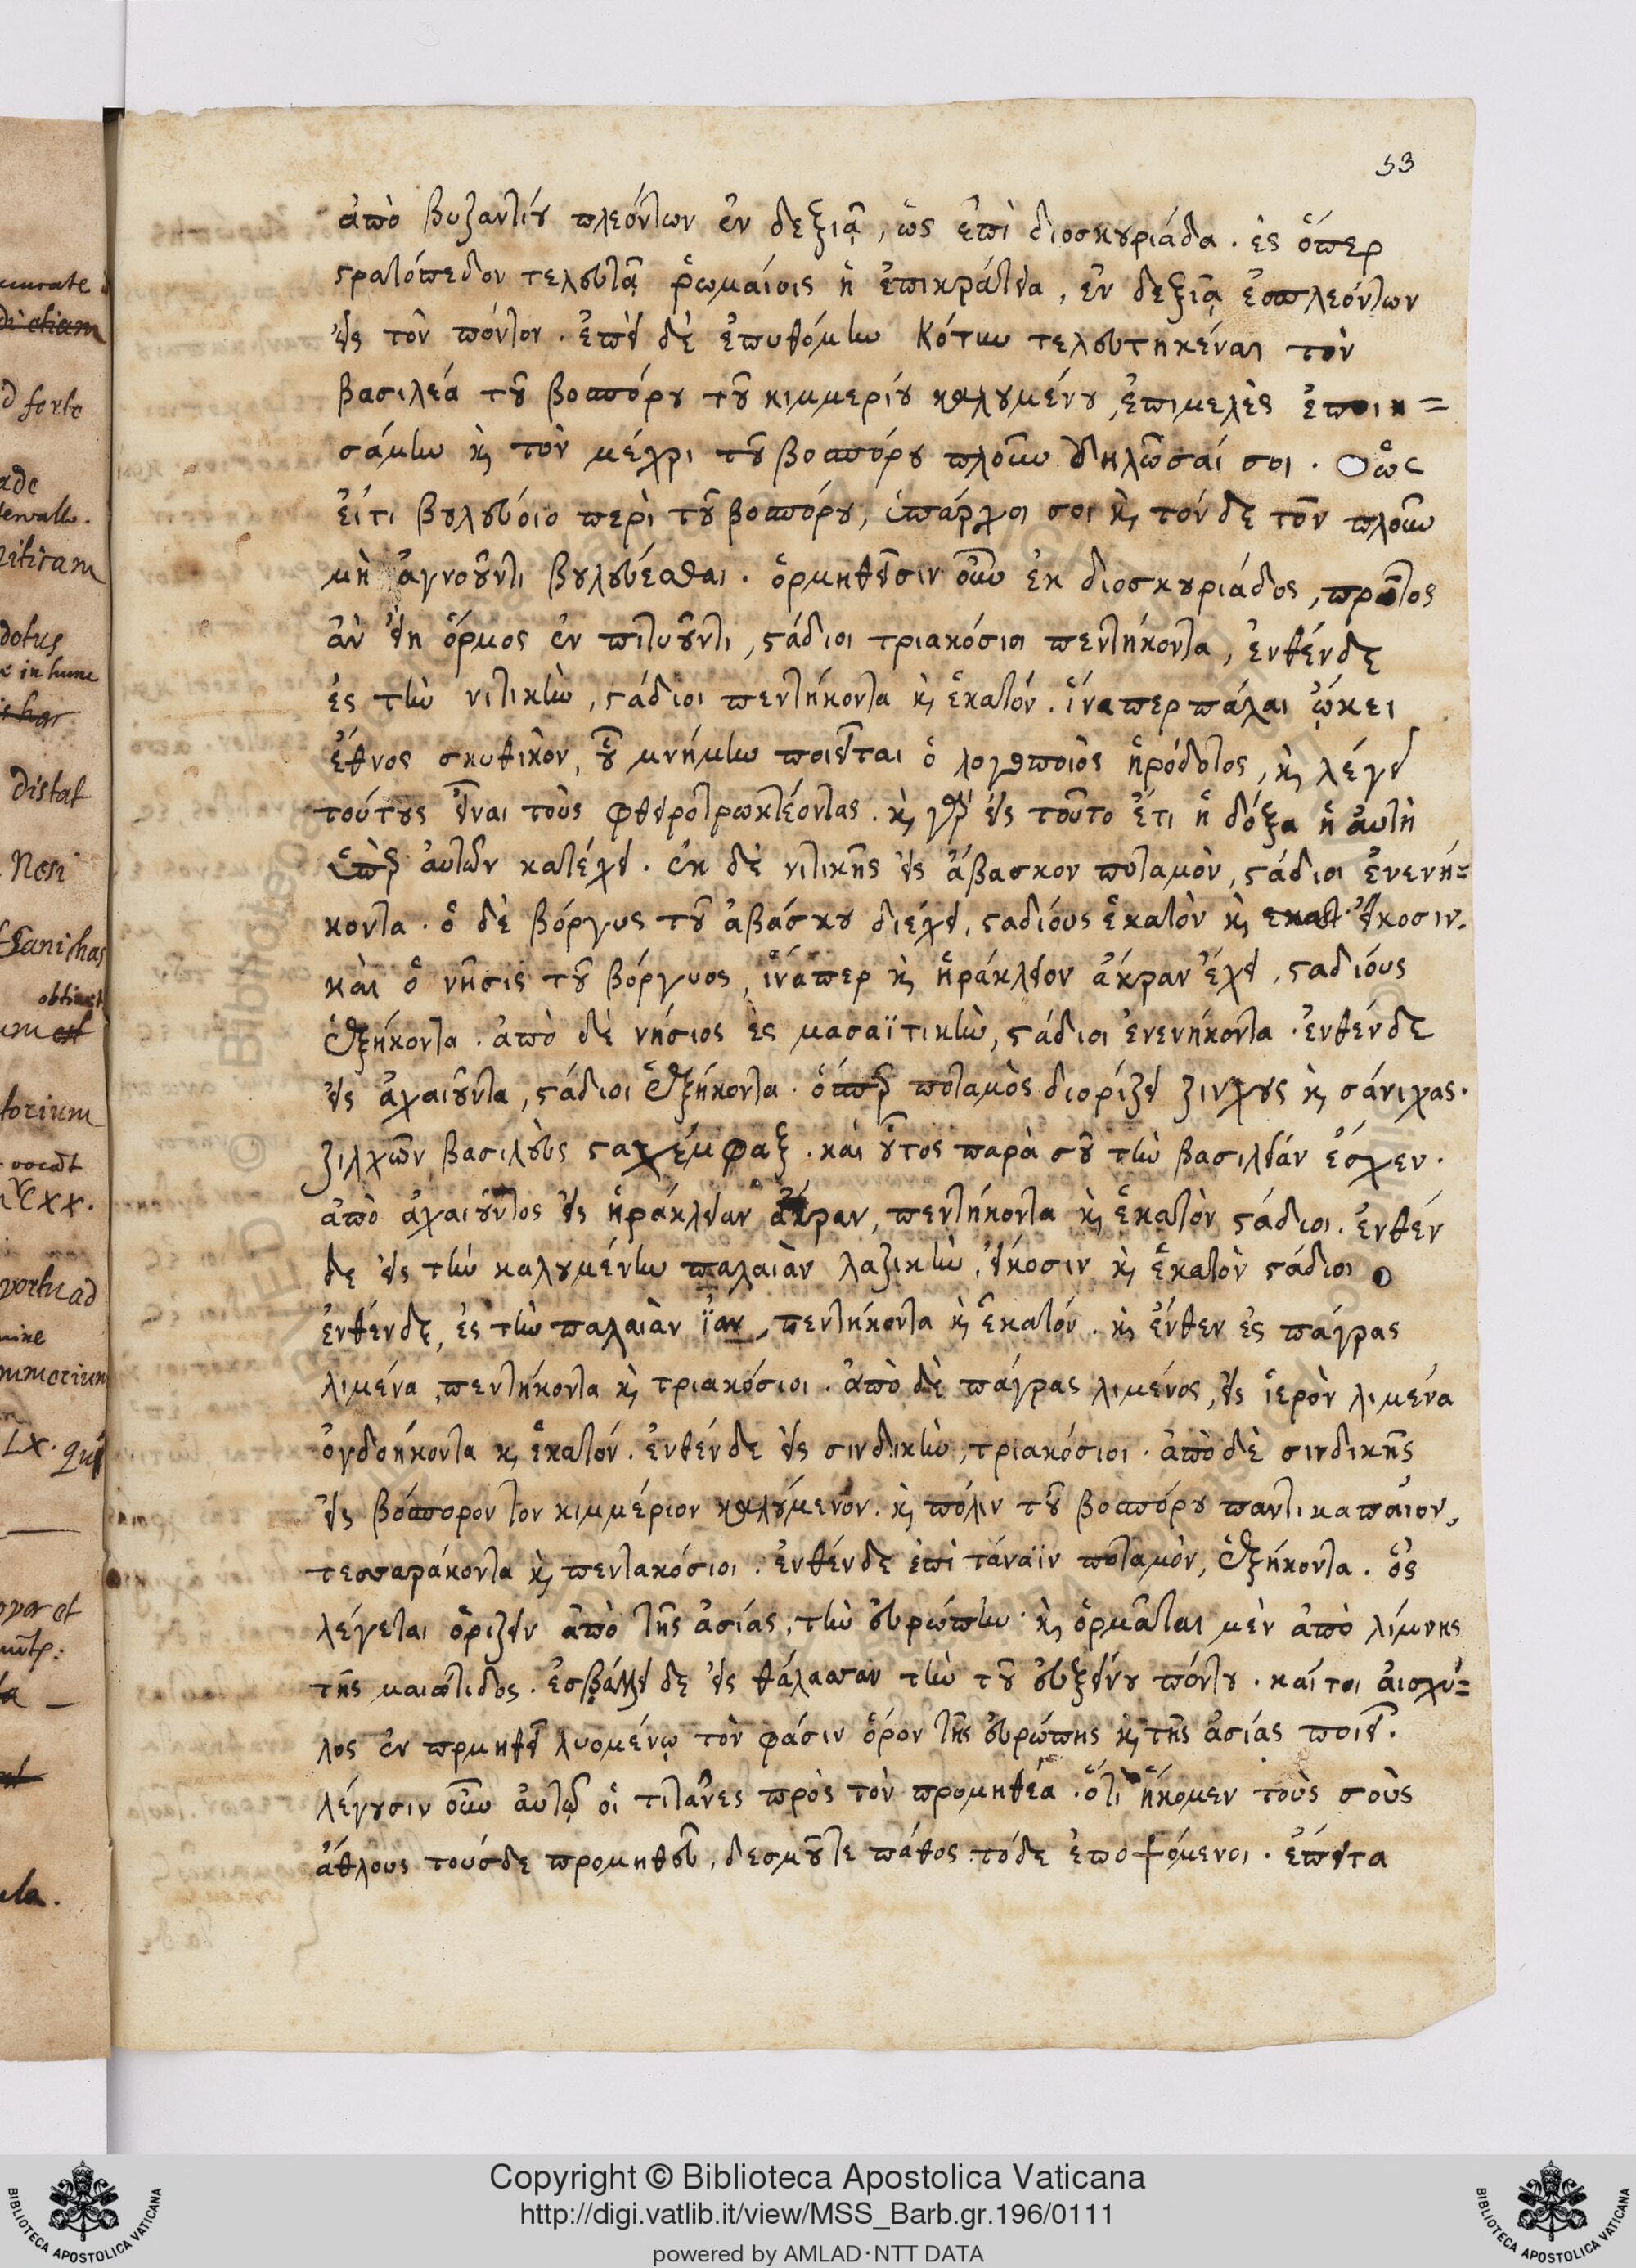 53
ἀπὸ βυζαντίου πλεόντων ἐν δεξιᾷ, ὡς ἐπὶ διοσκουριάδα. ἐς ὅπερ
στρατόπεδον τελευτᾷ ῥωμαίοις ἡ ἐπικράτεια, ἐν δεξιᾷ ἐσπλεόντων
εἰς τὸν πόντον. ἐπεὶ δὲ ἐπυθόμην Κότυν τελευτηκέναι τὸν
βασιλέα τοῦ βοσπόρου τοῦ κιμμερίου καλουμένου, ἐπιμελὲς ἐποιη=
σάμην καὶ τὸν μέχρι τοῦ βοσπόρου πλοῦν δηλῶσαί σοι. ὡς
εἴ τι βουλεύοιο περὶ τοῦ βοσπόρου, ὑπάρχοι σοι καὶ τόνδε τὸν πλοῦν
μὴ ἀγνοοῦντι βουλεύεσθαι. ὁρμηθεῖσιν οὖν ἐκ διοσκουριάδος, πρῶτος
ἂν εἴη ὅρμος ἐν πιτυοῦντι, στάδιοι τριακόσιοι πεντήκοντα, ἐνθένδε
ἐς τὴν νιτικὴν, στάδιοι πεντήκοντα καὶ ἑκατόν. ἵναπερ πάλαι ᾤκει
ἔθνος σκυθικὸν, οὗ μνήμην ποιεῖται ὁ λογοποιὸς ἡρόδοτος, καὶ λέγει
τούτους εἶναι τοὺς φθειροτρωκτέοντας. καὶ γὰρ εἰς τοῦτο ἔτι ἡ δόξα ἡ αὐτὴ
ὑπὲρ αὐτῶν κατέχει. ἐκ δὲ νιτικῆς εἰς ἄβασκον ποταμὸν, στάδιοι ἐνενή=
κοντα. ὁ δὲ βόργυς τοῦ ἀβάσκου διέχει, σταδίους ἑκατὸν καὶ εἴκοσιν.
καὶ ὁ νῆσις τοῦ βόργυος, ἵναπερ καὶ ἡράκλειον ἄκραν ἔχει, σταδίους
ἑξήκοντα. ἀπὸ δὲ νήσιος ἐς μασαϊτικὴν, στάδιοι ἐνενήκοντα. ἐνθένδε
εἰς ἀχαιοῦντα, στάδιοι ἑξήκοντα. ὅσπερ ποταμὸς διορίζει ζινχους καὶ σάνιχας.
ζιλχῶν βασιλεὺς σταχέμφαξ. καὶ οὗτος παρὰ σοῦ τὴν βασιλείαν ἔσχεν.
ἀπὸ ἀχαιοῦντος εἰς ἡράκλειαν ἄκραν, πεντήκοντα καὶ ἑκατὸν στάδιοι. ἐνθέν
δε εἰς τὴν καλουμένην παλαιὰν λαζικὴν, εἴκοσιν καὶ ἑκατὸν στάδιοι
ἐνθένδε, ἐς τὴν παλαιὰν ἴαν, πεντήκοντα καὶ ἑκατόν. καὶ ἔνθεν ἐς πάγρας
λιμένα, πεντήκοντα καὶ τριακόσιοι. ἀπὸ δὲ πάγρας λιμένος, εἰς ἱερὸν λιμένα
ὀγδοήκοντα καὶ ἑκατόν. ἐνθένδε εἰς σινδικὴν, τριακόσιοι. ἀπὸ δὲ σινδικῆς
εἰς βόσπορον τὸν κιμμέριον καλούμενον. καὶ πόλιν τοῦ βοσπόρου παντικαπαῖον,
τεσσαράκοντα καὶ πεντακόσιοι. ἐνθένδε ἐπὶ τάναϊν ποταμὸν, ἑξήκοντα. ὃς
λέγεται ὁρίζειν ἀπὸ τῆς ἀσίας, τὴν εὐρώπην. καὶ ὁρμᾶται μὲν ἀπὸ λίμνης
τῆς μαιώτιδος. ἐσβάλλει δὲ εἰς θάλασσαν τὴν τοῦ εὐξείνου πόντου. καίτοι αἰσχύ=
λος ἐν προμηθεῖ λυομένῳ τὸν φάσιν ὅρον τῆς εὐρώπης καὶ τῆς ἀσίας ποιεῖ.
λέγουσιν οὖν αὐτῷ οἱ τιτᾶνες πρὸς τὸν προμηθέα. ὅτι ἥκομεν τοὺς σοὺς
ἄθλους τούσδε προμηθεῦ, δεσμοῦ τε πάθος τόδε ἐποψόμενοι. ἔπειτα
distat
Copyright © Biblioteca Apostolica Vaticana
http://digi.vatlib.it/view/MSS_Barb.gr.196/0111
powered by AMLAD·NTT DATA
BIBLIOTECA APOSTOLICA VATICANA
BIBLIOTECA APOSTOLICA VATICANA